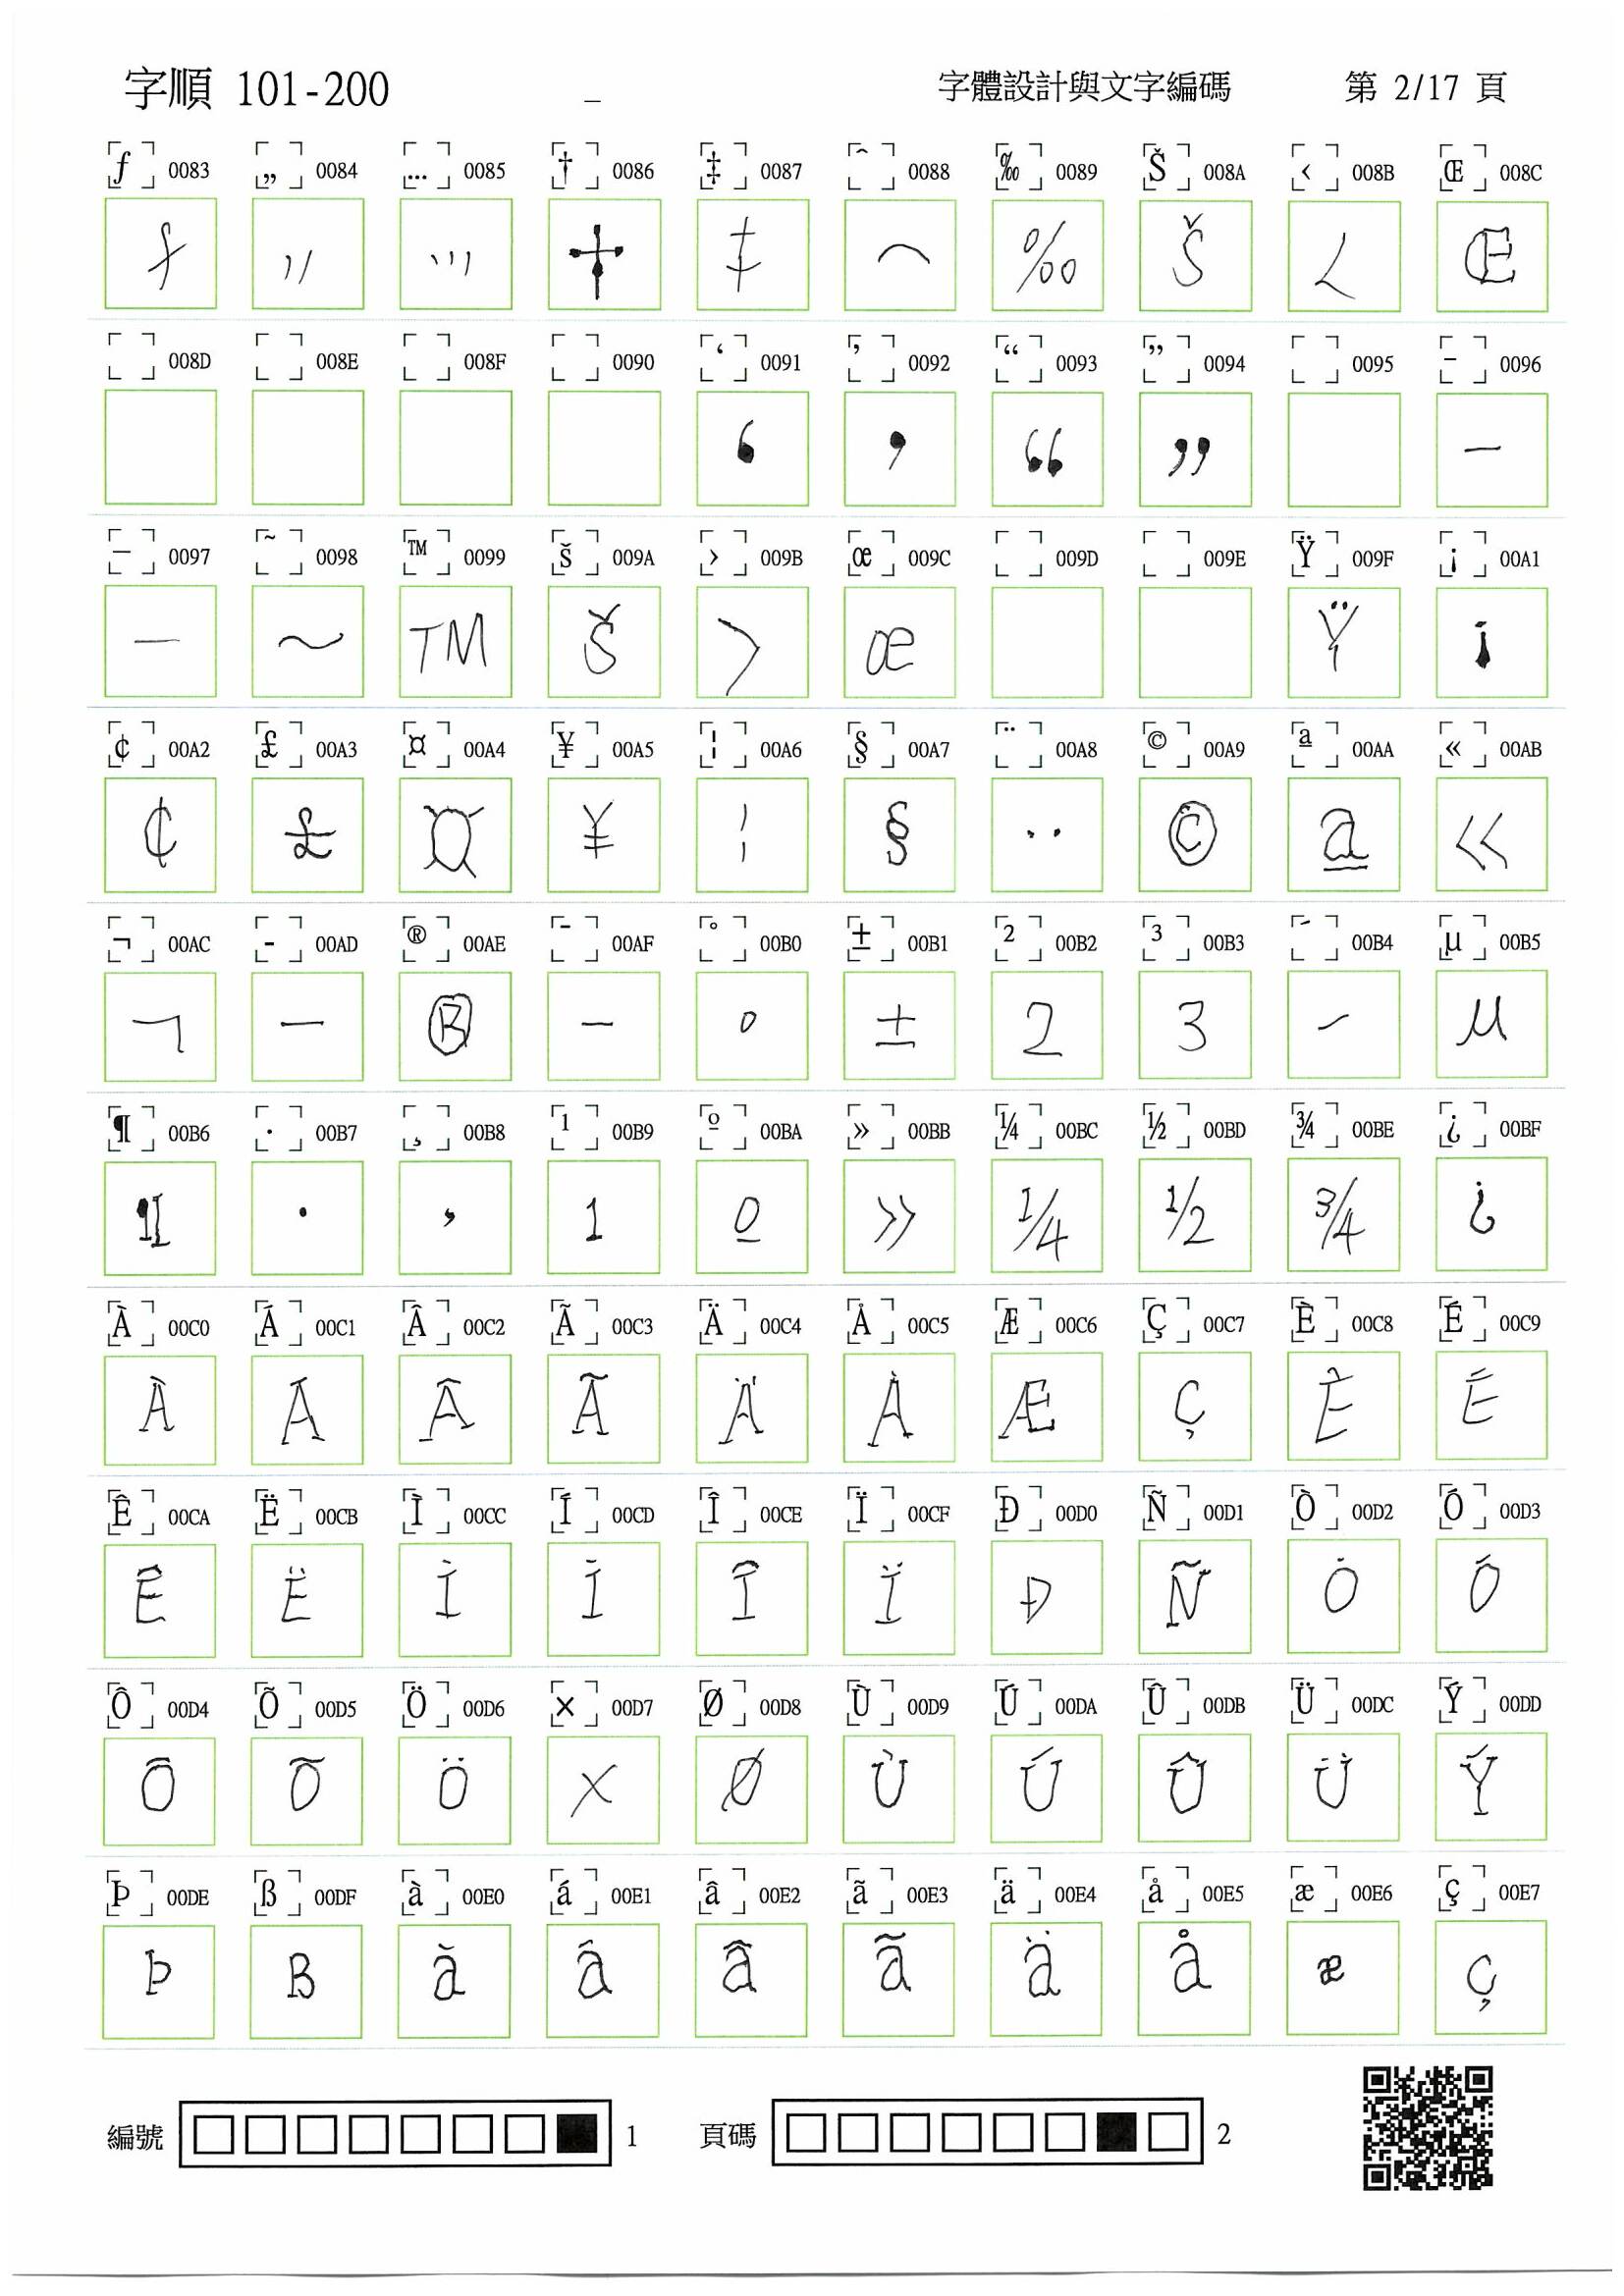 字順 101-200 _ 字體設計與文字編碼 第 2/17 頁
ƒ 0083 „ 0084 … 0085 † 0086 ‡ 0087 ˆ 0088 ‰ 0089 Š 008A ‹ 008B Œ 008C
ƒ ,, ,,, † ‡ ⌒ ‰ Š ‹ Œ
008D 008E 008F 0090 ‘ 0091 ’ 0092 “ 0093 ” 0094 0095 – 0096
‘ ’ “ ” –
— 0097 ˜ 0098 ™ 0099 š 009A › 009B œ 009C 009D 009E Ÿ 009F ¡ 00A1
— ~ TM š › œ Ÿ ¡
¢ 00A2 £ 00A3 ¤ 00A4 ¥ 00A5 ¦ 00A6 § 00A7 ¨ 00A8 © 00A9 ª 00AA « 00AB
¢ £ ¤ ¥ ¦ § ¨ © ª «
¬ 00AC - 00AD ® 00AE ¯ 00AF ° 00B0 ± 00B1 ² 00B2 ³ 00B3 ´ 00B4 µ 00B5
¬ — ® – ° ± 2 3 ´ µ
¶ 00B6 · 00B7 ¸ 00B8 ¹ 00B9 º 00BA » 00BB ¼ 00BC ½ 00BD ¾ 00BE ¿ 00BF
¶ · , 1 º » ¼ ½ ¾ ¿
À 00C0 Á 00C1 Â 00C2 Ã 00C3 Ä 00C4 Å 00C5 Æ 00C6 Ç 00C7 È 00C8 É 00C9
À Á Â Ã Ä Å Æ Ç È É
Ê 00CA Ë 00CB Ì 00CC Í 00CD Î 00CE Ï 00CF Ð 00D0 Ñ 00D1 Ò 00D2 Ó 00D3
Ê Ë Ì Í Î Ï Ð Ñ Ò Ó
Ô 00D4 Õ 00D5 Ö 00D6 × 00D7 Ø 00D8 Ù 00D9 Ú 00DA Û 00DB Ü 00DC Ý 00DD
Ô Õ Ö × Ø Ù Ú Û Ü Ý
Þ 00DE ß 00DF à 00E0 á 00E1 â 00E2 ã 00E3 ä 00E4 å 00E5 æ 00E6 ç 00E7
Þ ß à á â ã ä å æ ç
編號 1 頁碼 2